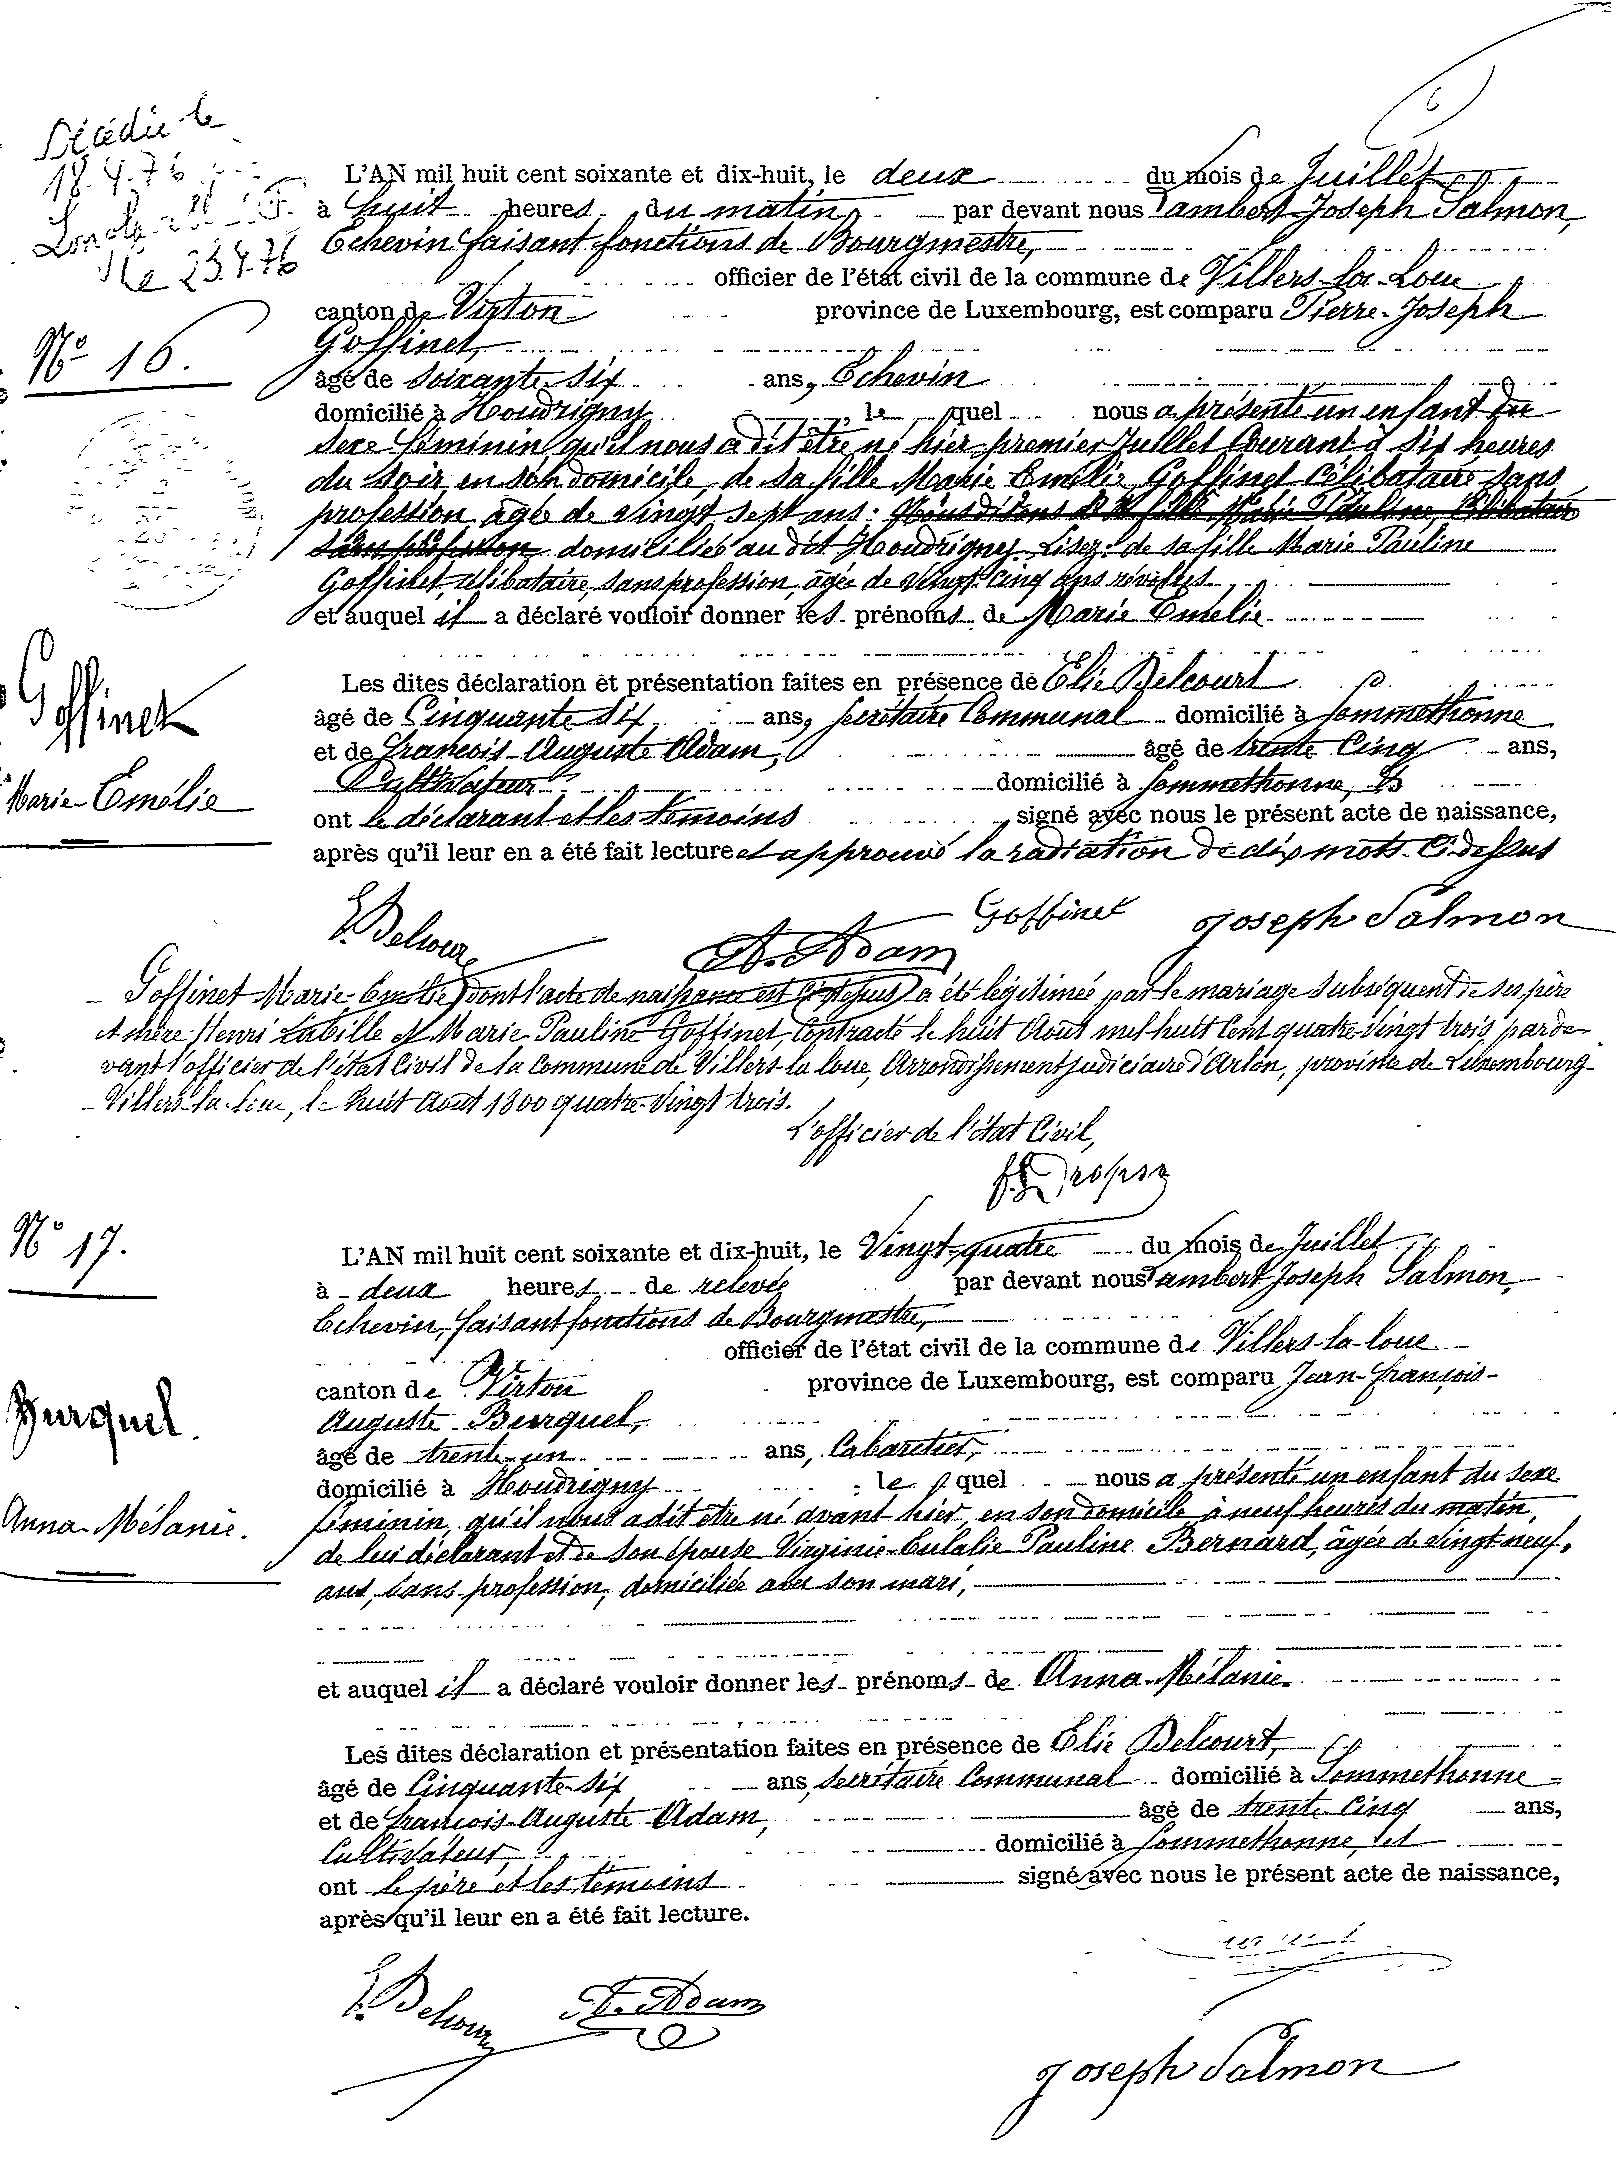 Décédée le
18.4.76
le 23.4.76
L'AN mil huit cent soixante et dix-huit, le deux du mois de Juillet
à huit heures du matin par devant nous Lambert Joseph Salmon,
Echevin faisant fonctions de Bourgmestre,
officier de l'état civil de la commune de Villers-la-Loue
canton de Virton province de Luxembourg, est comparu Pierre-Joseph
Goffinet,
âgé de soixante six ans, Echevin
domicilié à Houdrigny, le quel nous a présenté un enfant du
sexe féminin qu'il nous a dit être né hier premier Juillet Courant à six heures
du soir en son domicile, de sa fille Marie Emélie Goffinet Célibataire sans
profession âgée de vingt sept ans: Marie Pauline, Célibataire
sans profession domiciliée au dit Houdrigny. Lisez: de sa fille Marie Pauline
Goffinet, célibataire, sans profession, âgée de vingt-cinq ans révolus
et auquel il a déclaré vouloir donner les prénoms de Marie Emélie
Les dites déclaration et présentation faites en présence de Elie Delcourt
âgé de Cinquante six ans, secrétaire Communal domicilié à Sommethonne
et de François-Auguste Adam, âgé de trente Cinq ans,
Cultivateur domicilié à Sommethonne, et
ont le déclarant et les témoins signé avec nous le présent acte de naissance,
après qu'il leur en a été fait lecture et approuvé la radiation de dix mots Ci-dessus
E. Delcour A. Adam Goffinet Joseph Salmon
N° 16.
Goffinet
Marie-Emélie
Goffinet Marie-Emélie dont l'acte de naissance est Ci-dessus a été légitimée par le mariage subséquent de ses père
et mère Henri Labille et Marie-Pauline Goffinet, Contracté le huit Août mil huit Cent quatre-vingt trois, par de-
vant l'officier de l'état Civil de la Commune de Villers-la-loue, Arrondissement judiciaire d'Arlon, province de Luxembourg
Villers-la-Loue, le huit Août 1800 quatre-Vingt trois.
L'officier de l'état Civil,
Dropsy
N° 17.
Burquel.
Anna-Mélanie.
L'AN mil huit cent soixante et dix-huit, le Vingt-quatre du mois de Juillet
à deux heures de relevée par devant nous Lambert Joseph Salmon,
Echevin, faisant fonctions de Bourgmestre,
officier de l'état civil de la commune de Villers-la-loue
canton de Virton province de Luxembourg, est comparu Jean-François-
Auguste Burquel,
âgé de trente-un ans, Cabaretier,
domicilié à Houdrigny le quel nous a présenté un enfant du sexe
féminin, qu'il nous a dit etre né avant hier, en son domicile à neuf heures du matin,
de lui déclarant et de son épouse Virginie-Eulalie Pauline Bernard, âgée de vingt-neuf
ans, sans profession, domiciliée avec son mari,
et auquel il a déclaré vouloir donner les prénoms de Anna-Mélanie.
Les dites déclaration et présentation faites en présence de Elie Delcourt,
âgé de Cinquante-six ans, secrétaire Communal domicilié à Sommethonne
et de François-Auguste Adam, âgé de trente-Cinq ans,
Cultivateur, domicilié à Sommethonne, et
ont le père et les témoins signé avec nous le présent acte de naissance,
après qu'il leur en a été fait lecture.
E. Delcour A. Adam
Joseph Salmon